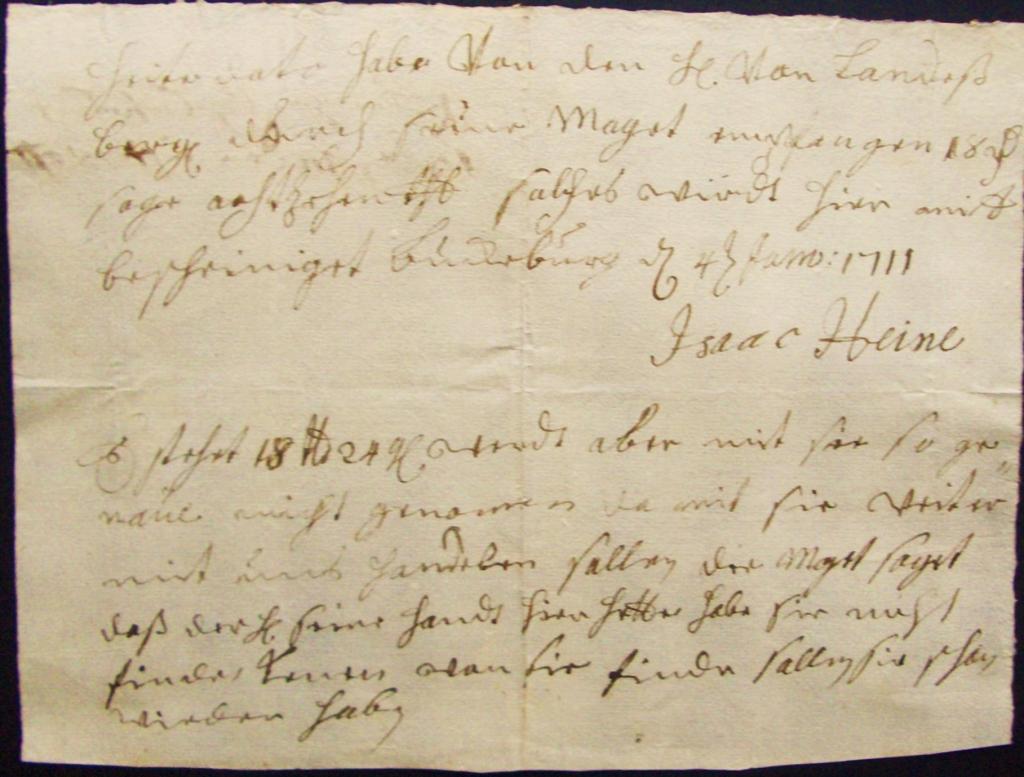 heite dato habe Von den H. Von Landeß
berg durch seine Maget empfangen 18
sage achtzehen solches wirdt hier mit
bescheiniget Bückeburg d 4 Janu: 1711
Isaac Heine
Es stehet 18 24 werdt aber mit sie so ge"
naue nicht genomen da mit sie weiter
mit uns handelen sollen die Maget saget
daß der H. seine handt hier hette habe sie nicht
finden kenen wan sie finde sollen sie schon
wieder haben